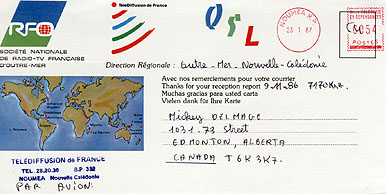 RFO
TéléDiffusion de France
QSL
NOUMEA R.P.
054
POSTES
SOCIÉTÉ NATIONALE
DE RADIO-TV FRANÇAISE
D'OUTRE-MER
Direction Régionale : Outre-Mer Nouvelle-Calédonie
Avec nos remerciements pour votre courrier
Thanks for your reception report 9.11.86 7170KHz
Muchas gracias para usted carta
Vielen dank für Ihre Karte
Mickey DELMAGE
1031.73 Street
EDMONTON, ALBERTA
CANADA T6K 3K7.
TÉLÉDIFFUSION DE FRANCE
TEL. 28.20.30 B.P 332
NOUMÉA Nouvelle Calédonie
PAR AVION